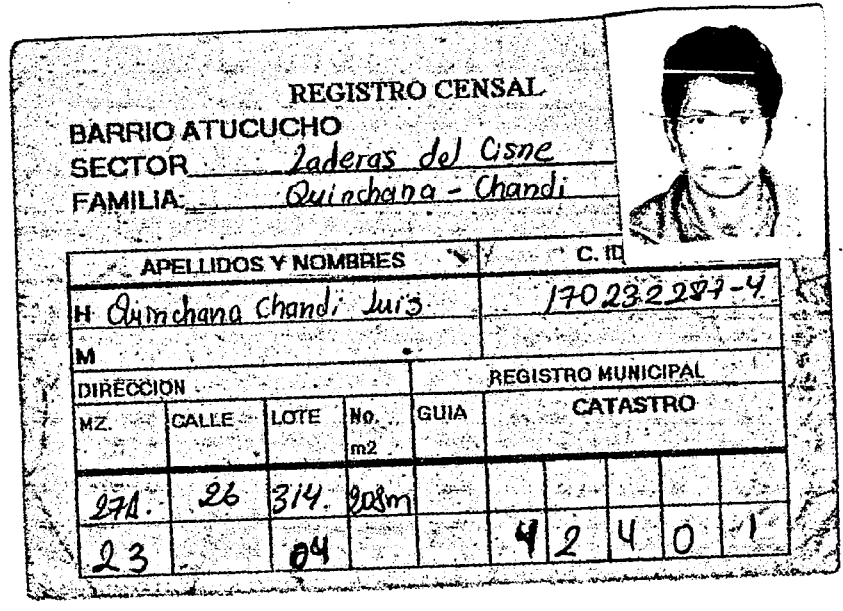 REGISTRO CENSAL
BARRIO ATUCUCHO
SECTOR Laderas del Cisne
FAMILIA: Quinchana - Chandi
APELLIDOS Y NOMBRES C. ID
H Quinchana Chandi Luis 170232287-4
M
DIRECCION REGISTRO MUNICIPAL
MZ. CALLE LOTE No. m2 GUIA CATASTRO
27A. 26 314. 208m
23 04 4 2 4 0 1